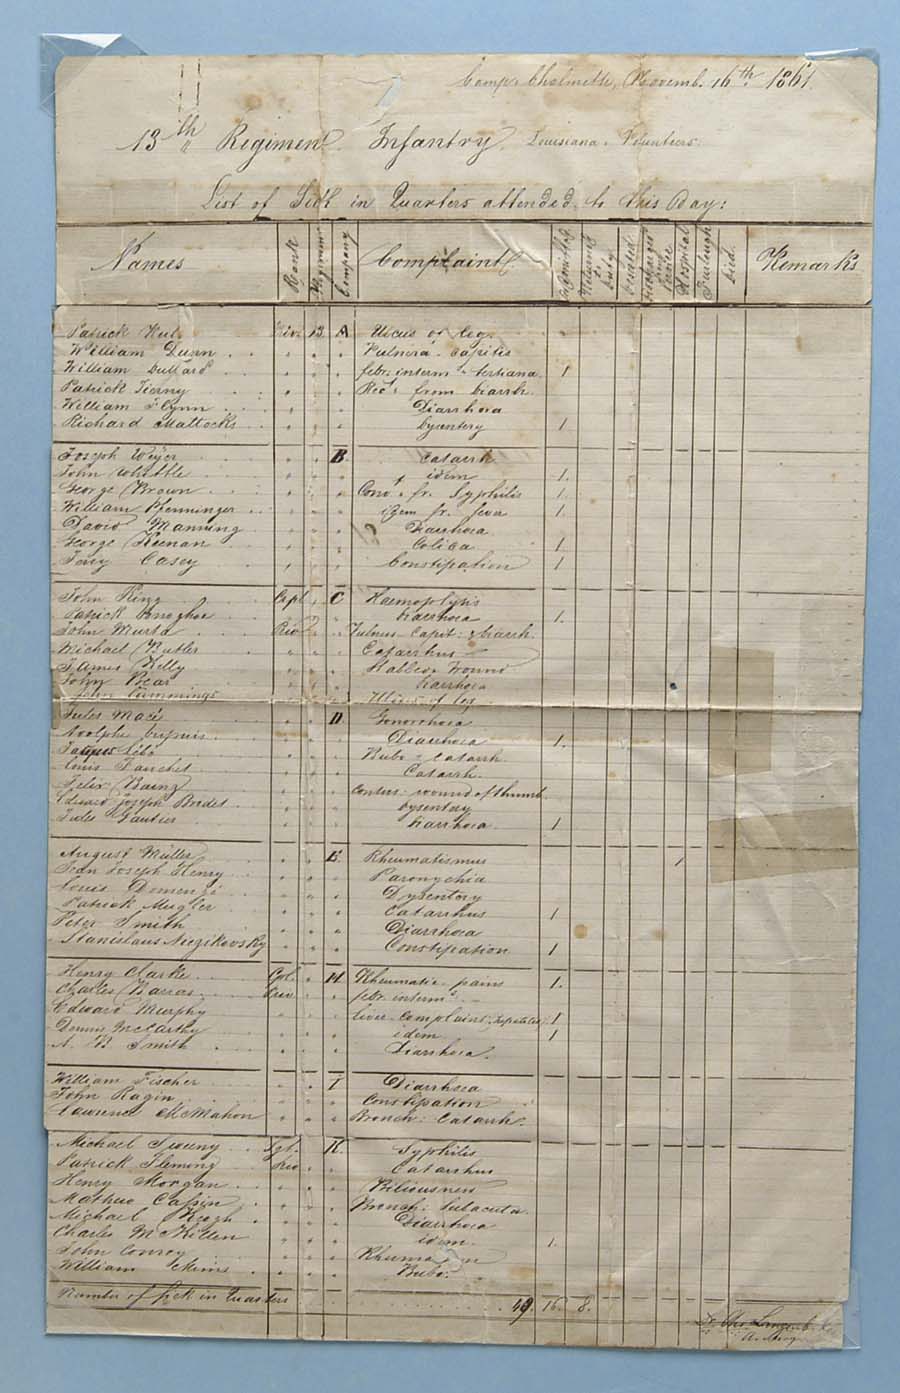 Camp Chalmette, Novemb. 16th 1861
13th Regiment Infantry Louisiana Volunteers.
List of Sick in Quarters attended to this Day:
Names Rank Regiment Company Complaint Admitted Returned to duty Deserted Discharged from Service Hospital Furlough Died. Remarks
Patrick Priv. 13. A Ulcus of leg
William Dunn Vulnera capitis
William Dullard febr. interm. tertiana 1
Patrick Tierny from Diarrh.
William Flynn Diarrhoea
Richard Mattocks Dysentery 1
Joseph Weyer B Catarrh
John Whittle idem 1.
George Brown Conv. fr. Syphilis 1.
William Pfenninger idem fr. fever 1
David Manning Diarrhoea
George Keenan Colica 1
Terry Casey Constipation 1
John King Cepl C Haemoptysis
Patrick Donoghoe Diarrhoea 1.
John Murta Priv Vulnus Capit: & Diarrh.
Michael Butler Catarrhus
James Kelly Stabbed Wound
John Bear Diarrhoea
John Cummings Ulcus of leg
Jules Macé D Gonorrhoea
Adolphe Dupuis Diarrhoea 1.
Bubo & Catarrh
Louis Fanchet Catarrh.
Felix Contus: wound of thumb
Edward Joseph Brides Dysentery
Jules Gautier Diarrhoea 1
August Müller E. Rheumatismus 1
Jean Joseph Henry Paronychia
Louis Domengé Dysentery
Patrick Mugler Catarrhus 1
Peter Smith Diarrhoea
Stanislaus Niezikovsky Constipation 1
Henry Clarke Cpl. H. Rheumatic pains 1.
Charles Barras Priv febr. interm.
Edward Murphy Liver Complaint 1
Dennis McCarthy idem 1
A. B. Smith Diarrhoea.
William Fischer I Diarrhoea
John Ragin Constipation
Lawrence McMahon Bronch: Catarrh.
Michael Sweny Sgt. K. Syphilis
Patrick Fleming Priv Catarrhus
Henry Morgan Biliousness
Mathew Cassin Bronch: Subacuta
Michael Keogh Diarrhoea
Charles McKillen idem. 1.
John Conroy
William Mims Bubo.
Number of Sick in Quarters 49 16. 8.